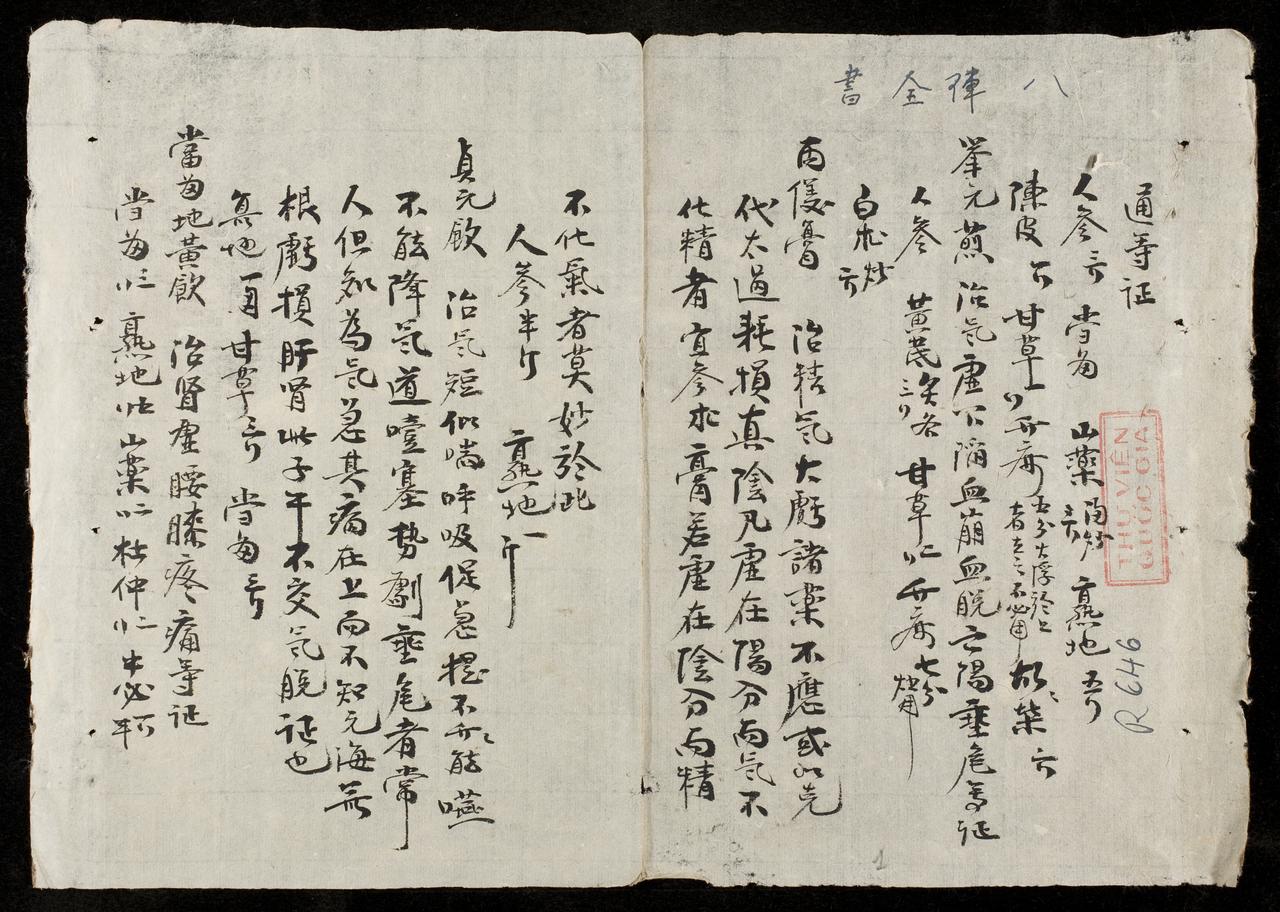 八陣全書
通等证
人參 當歸 山藥 熟地
陳皮 甘草 升麻 胡桃
舉元煎 治氣虛下陷血崩血脫亡陽垂危等证
人參 黃芪炙各 甘草 升麻 七分炒用
白朮炒
兩儀膏 治精氣大虧諸藥不應或以克
伐太過耗損真陰凡虛在陽分而氣不
化精者宜參朮膏若虛在陰分而精
不化氣者莫妙於此
人參半斤 熟地一斤
貞元飲 治氣短似喘呼吸促急提不能嚥
不能降氣道噎塞勢劇垂危者常
人但知為氣急其病在上而不知元海無
根虧損肝腎此子午不交氣脫证也
熟地 甘草 當歸
當歸地黃飲 治腎虛腰膝疼痛等证
當歸 熟地 山藥 杜仲 牛必
THƯ VIỆN
QUỐC GIA
R 646
1